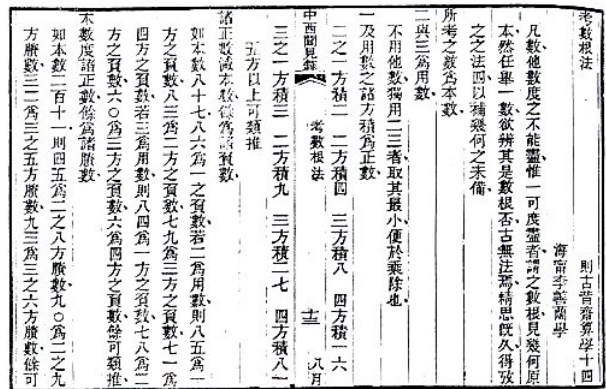 考數根法 則古昔齋算學十四
海甯李善蘭學
凡數他數度之不能盡惟一可度盡者謂之數根見幾何原
本然任舉一數欲辨其是數根否古無法焉精思旣久得攷
之之法四以補幾何之未備
所考之數爲本數
二與三爲用數
不用他數獨用二三者取其最小便於乘除也
一及用數之諸方積爲正數
二之一方積二 二方積四 三方積八 四方積一六
中西聞見錄 考數根法 十三 八月
三之一方積三 二方積九 三方積二七 四方積八一
五方以上可類推
諸正數減本數餘爲諸負數
如本數八十七八六爲一之負數若二爲用數則八五爲一
方之負數八三爲二方之負數七九爲三方之負數七一爲
四方之負數若三爲用數則八四爲一方之負數七八爲二
方之負數六〇爲三方之負數六爲四方之負數餘可類推
本數度諸正數餘爲諸賸數
如本數二百十一則四五爲二之八方賸數九〇爲二之九
方賸數三二爲三之五方賸數九三爲三之六方賸數餘可